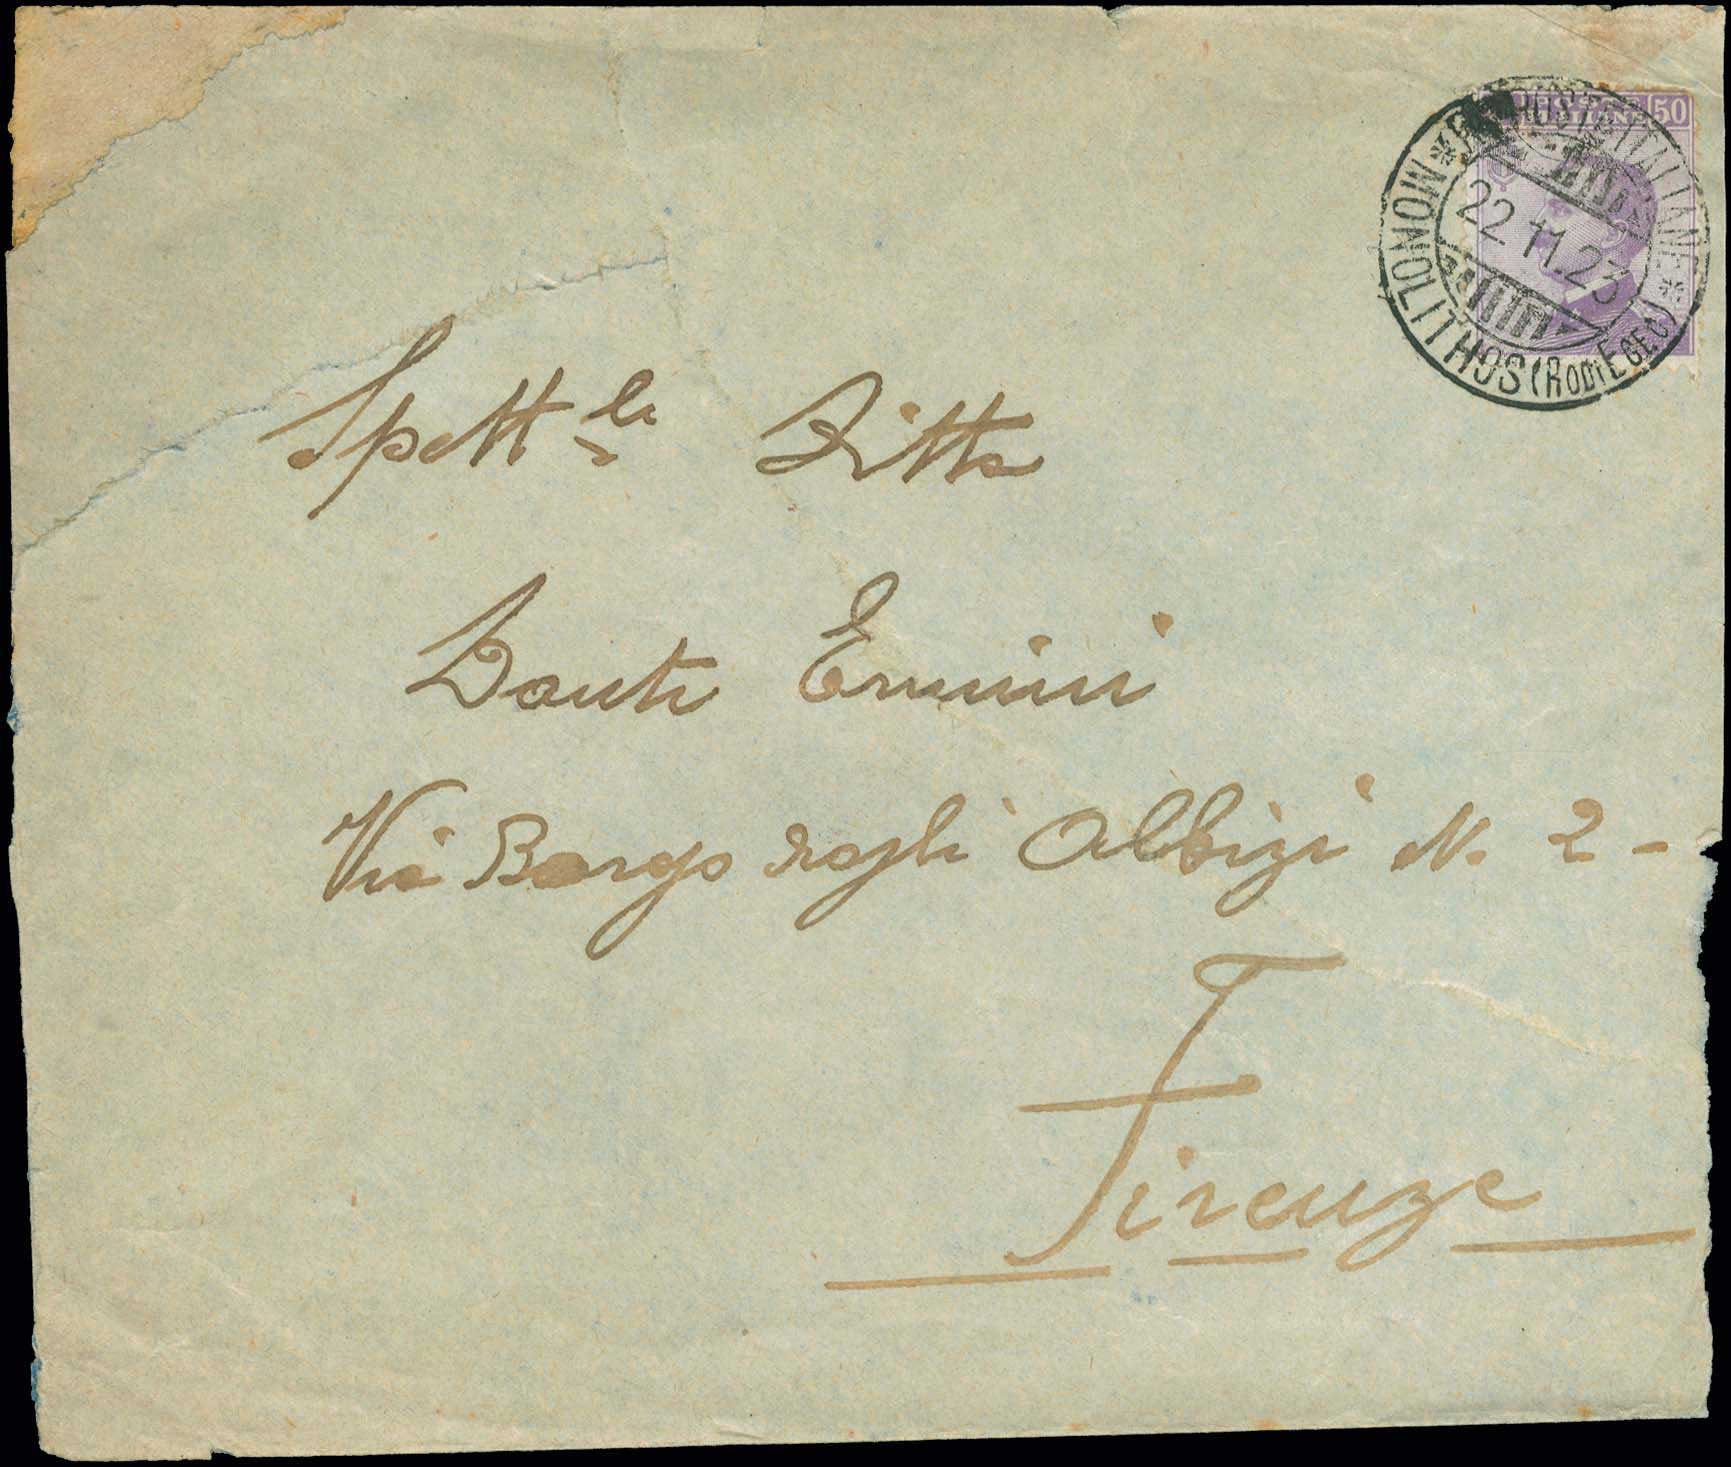 POSTE ITALIANE 50
POSTE ITALIANE
22.11.23
MONOLITHOS (RODI EGEO)
Spett.le Ditta
Dante Ermini
Via Borgo degli Albizi N. 2 -
Firenze